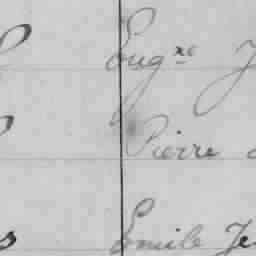 Eug.ne J
Pierre
Emile Je